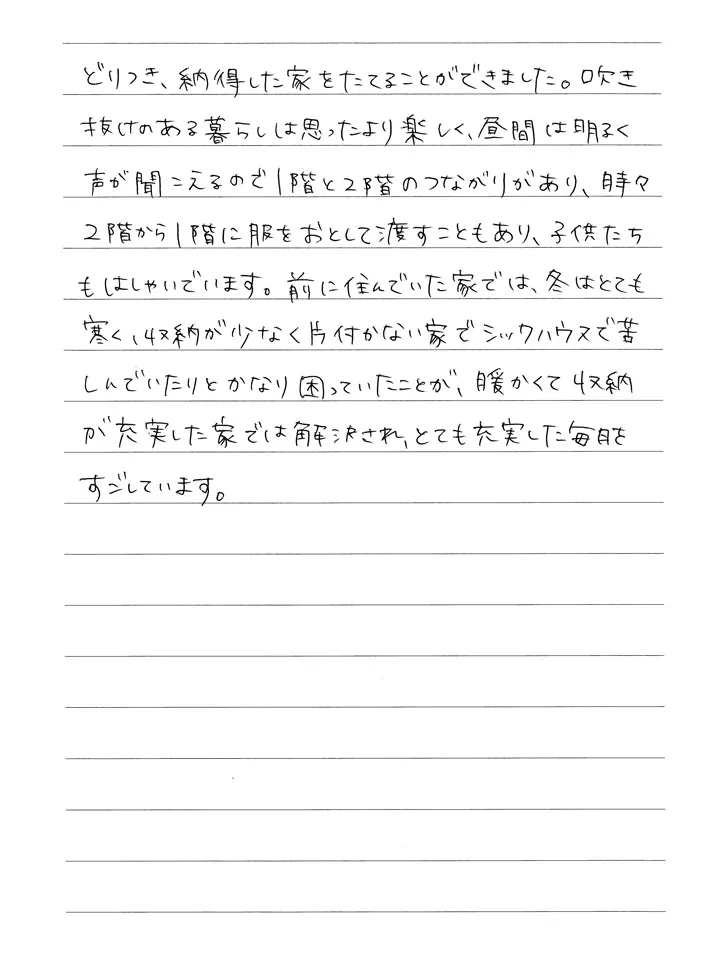 どりつき、納得した家をたてることができました。吹き
抜けのある暮らしは思ったより楽しく、昼間は明るく
声が聞こえるので1階と2階のつながりがあり、時々
2階から1階に服をおとして渡すこともあり、子供たち
もはしゃいでいます。前に住んでいた家では、冬はとても
寒く、収納が少なく片付かない家でシックハウスで苦
しんでいたりとかなり困っていたことが、暖かくて収納
が充実した家では解決され、とても充実した毎日を
すごしています。